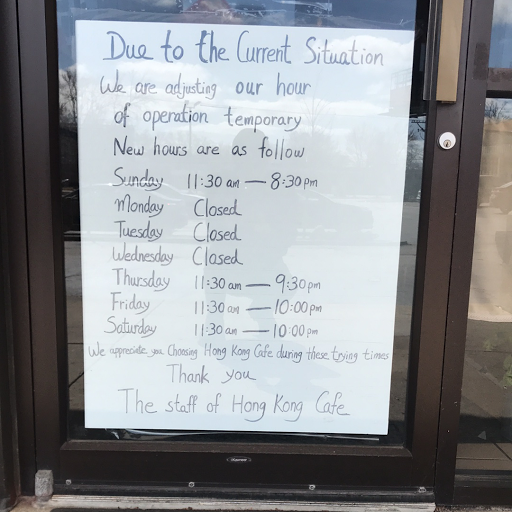 Due to the Current Situation
We are adjusting our hour
of operation temporary
New hours are as follow
Sunday 11:30 am — 8:30 pm
Monday Closed
Tuesday Closed
Wednesday Closed
Thursday 11:30 am — 9:30 pm
Friday 11:30 am — 10:00 pm
Saturday 11:30 am — 10:00 pm
We appreciate you Choosing Hong Kong Cafe during these trying times
Thank you
The staff of Hong Kong Cafe